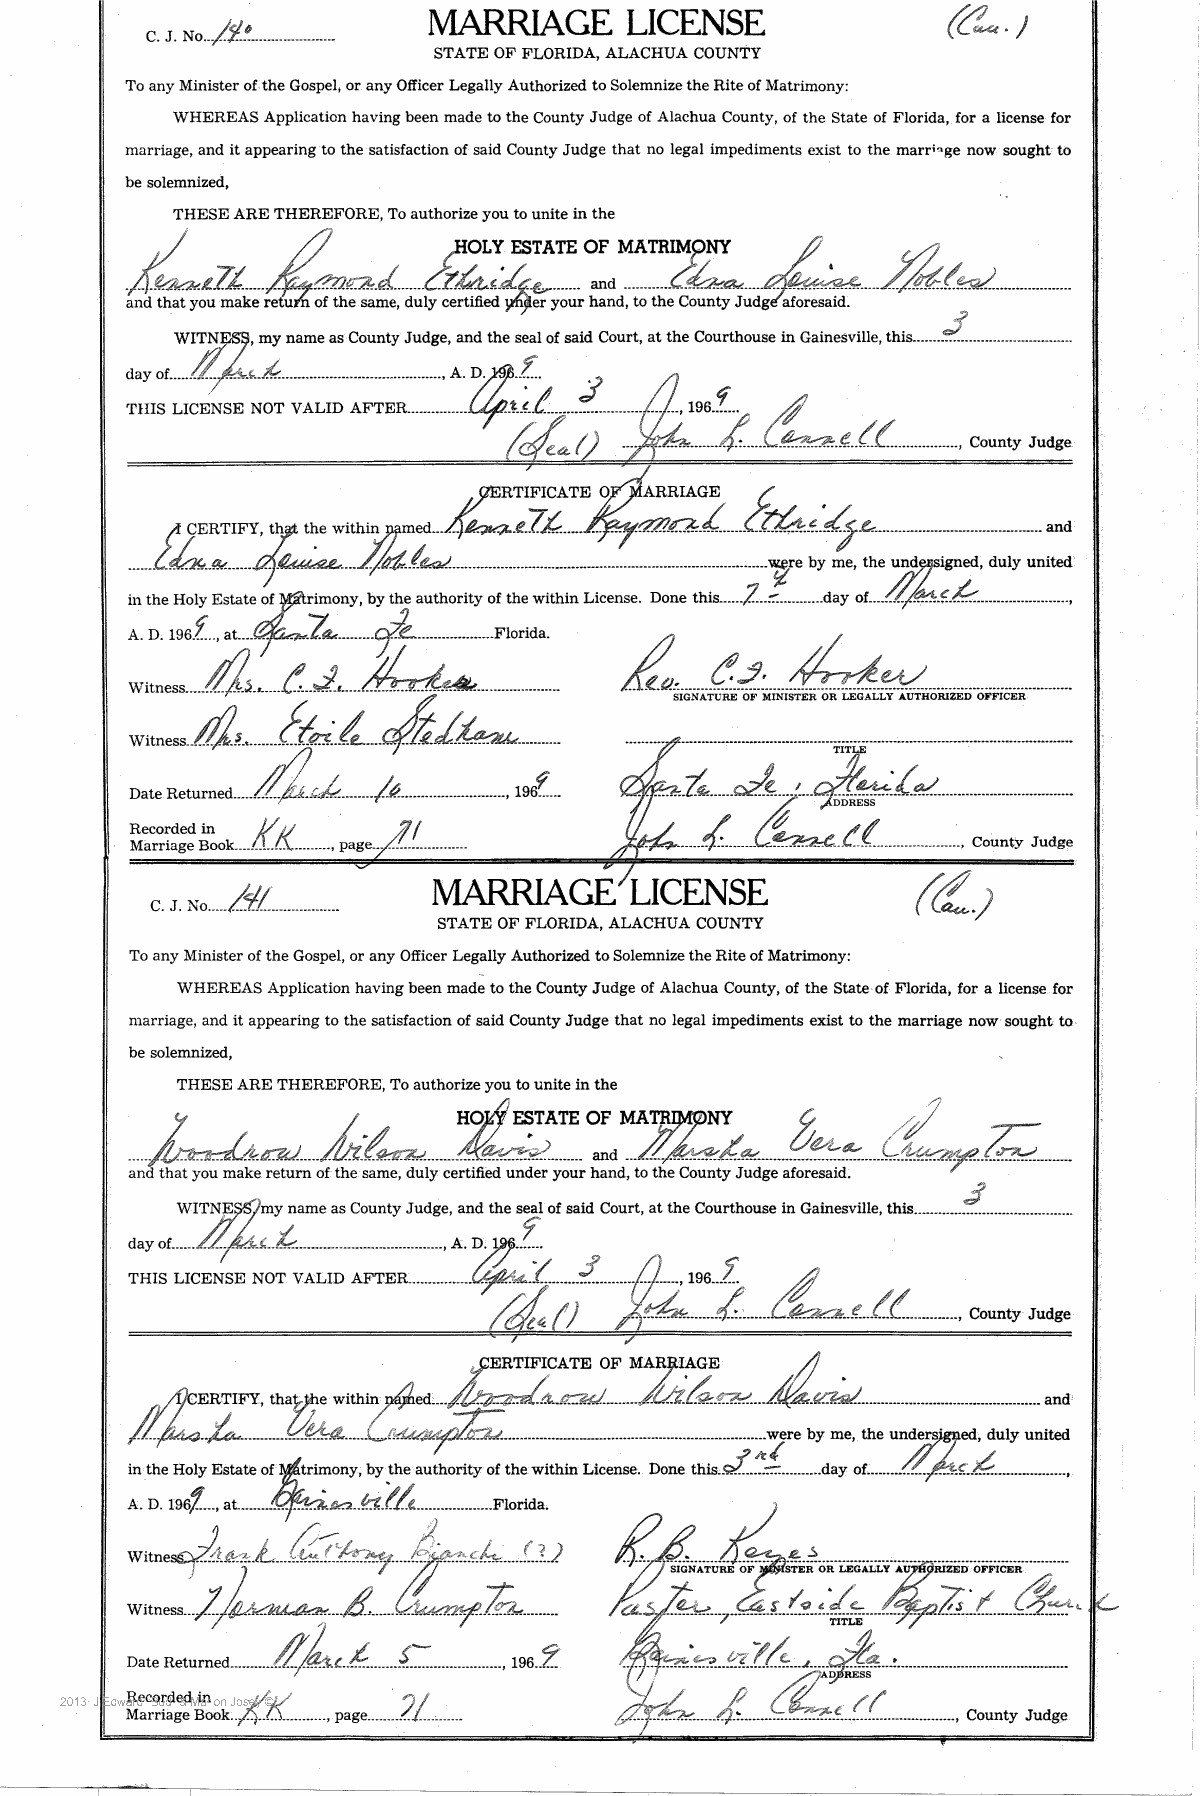 C. J. No. 140 MARRIAGE LICENSE (Cau.)
STATE OF FLORIDA, ALACHUA COUNTY
To any Minister of the Gospel, or any Officer Legally Authorized to Solemnize the Rite of Matrimony:
WHEREAS Application having been made to the County Judge of Alachua County, of the State of Florida, for a license for
marriage, and it appearing to the satisfaction of said County Judge that no legal impediments exist to the marriage now sought to
be solemnized,
THESE ARE THEREFORE, To authorize you to unite in the
HOLY ESTATE OF MATRIMONY
Kenneth Raymond Ethridge and Edna Louise Nobles
and that you make return of the same, duly certified under your hand, to the County Judge aforesaid.
WITNESS, my name as County Judge, and the seal of said Court, at the Courthouse in Gainesville, this 3
day of March, A. D. 1969
THIS LICENSE NOT VALID AFTER April 3, 1969
(Seal) John L. Connell, County Judge
CERTIFICATE OF MARRIAGE
I CERTIFY, that the within named Kenneth Raymond Ethridge and
Edna Louise Nobles were by me, the undersigned, duly united
in the Holy Estate of Matrimony, by the authority of the within License. Done this 7th day of March,
A. D. 1969, at Santa Fe Florida.
Witness Mrs. C. F. Hooker Rev. C. F. Hooker
SIGNATURE OF MINISTER OR LEGALLY AUTHORIZED OFFICER
Witness Mrs. Etoile Stedham
TITLE
Date Returned March 10, 1969 Santa Fe, Florida
ADDRESS
Recorded in
Marriage Book KK, page 71 John L. Connell, County Judge
C. J. No. 141 MARRIAGE LICENSE (Cau.)
STATE OF FLORIDA, ALACHUA COUNTY
To any Minister of the Gospel, or any Officer Legally Authorized to Solemnize the Rite of Matrimony:
WHEREAS Application having been made to the County Judge of Alachua County, of the State of Florida, for a license for
marriage, and it appearing to the satisfaction of said County Judge that no legal impediments exist to the marriage now sought to
be solemnized,
THESE ARE THEREFORE, To authorize you to unite in the
HOLY ESTATE OF MATRIMONY
Woodrow Wilson Davis and Marsha Vera Crumpton
and that you make return of the same, duly certified under your hand, to the County Judge aforesaid.
WITNESS, my name as County Judge, and the seal of said Court, at the Courthouse in Gainesville, this 3
day of March, A. D. 1969
THIS LICENSE NOT VALID AFTER April 3, 1969
(Seal) John L. Connell, County Judge
CERTIFICATE OF MARRIAGE
I CERTIFY, that the within named Woodrow Wilson Davis and
Marsha Vera Crumpton were by me, the undersigned, duly united
in the Holy Estate of Matrimony, by the authority of the within License. Done this 3rd day of March,
A. D. 1969, at Gainesville Florida.
Witness Frank Anthony Bianchi (?) R. B. Keyes
SIGNATURE OF MINISTER OR LEGALLY AUTHORIZED OFFICER
Witness Norman B. Crumpton Pastor, Eastside Baptist Church
TITLE
Date Returned March 5, 1969 Gainesville, Fla.
ADDRESS
Recorded in
Marriage Book KK, page 71 John L. Connell, County Judge